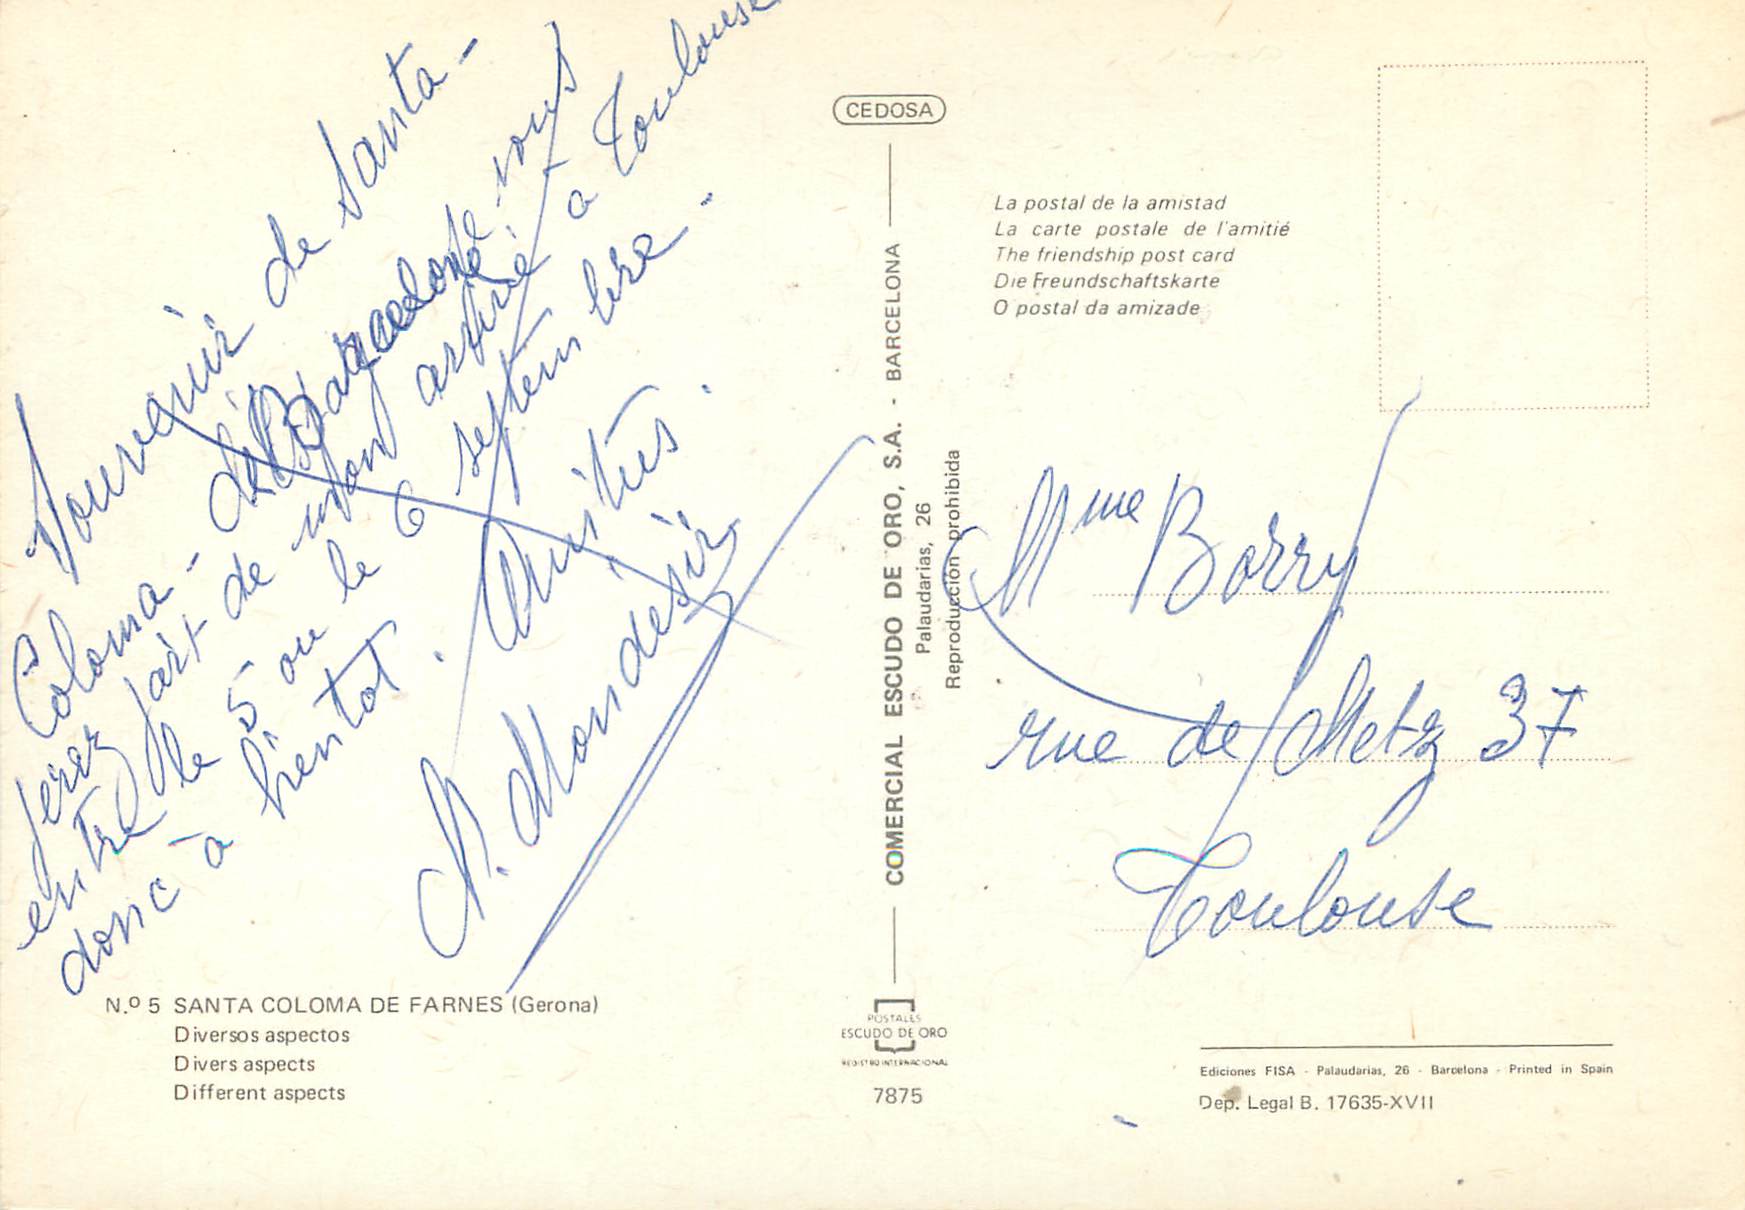 Souvenir de Santa-
Coloma - de Je vous
ferez part de mon arrivé à Toulouse
entre le 5 ou le 6 septembre.
donc à bientot. Amitiés.
N. Mondésir
N.º 5 SANTA COLOMA DE FARNES (Gerona)
Diversos aspectos
Divers aspects
Different aspects
CEDOSA
COMERCIAL ESCUDO DE ORO, S.A. - BARCELONA
Palaudarias, 26
Reproducción prohibida
POSTALES
ESCUDO DE ORO
REGISTRO INTERNACIONAL
7875
La postal de la amistad
La carte postale de l'amitié
The friendship post card
Die Freundschaftskarte
O postal da amizade
Mme Borry
rue de Metz 37
Toulouse
Ediciones FISA - Palaudarias, 26 - Barcelona - Printed in Spain
Dep. Legal B. 17635-XVII